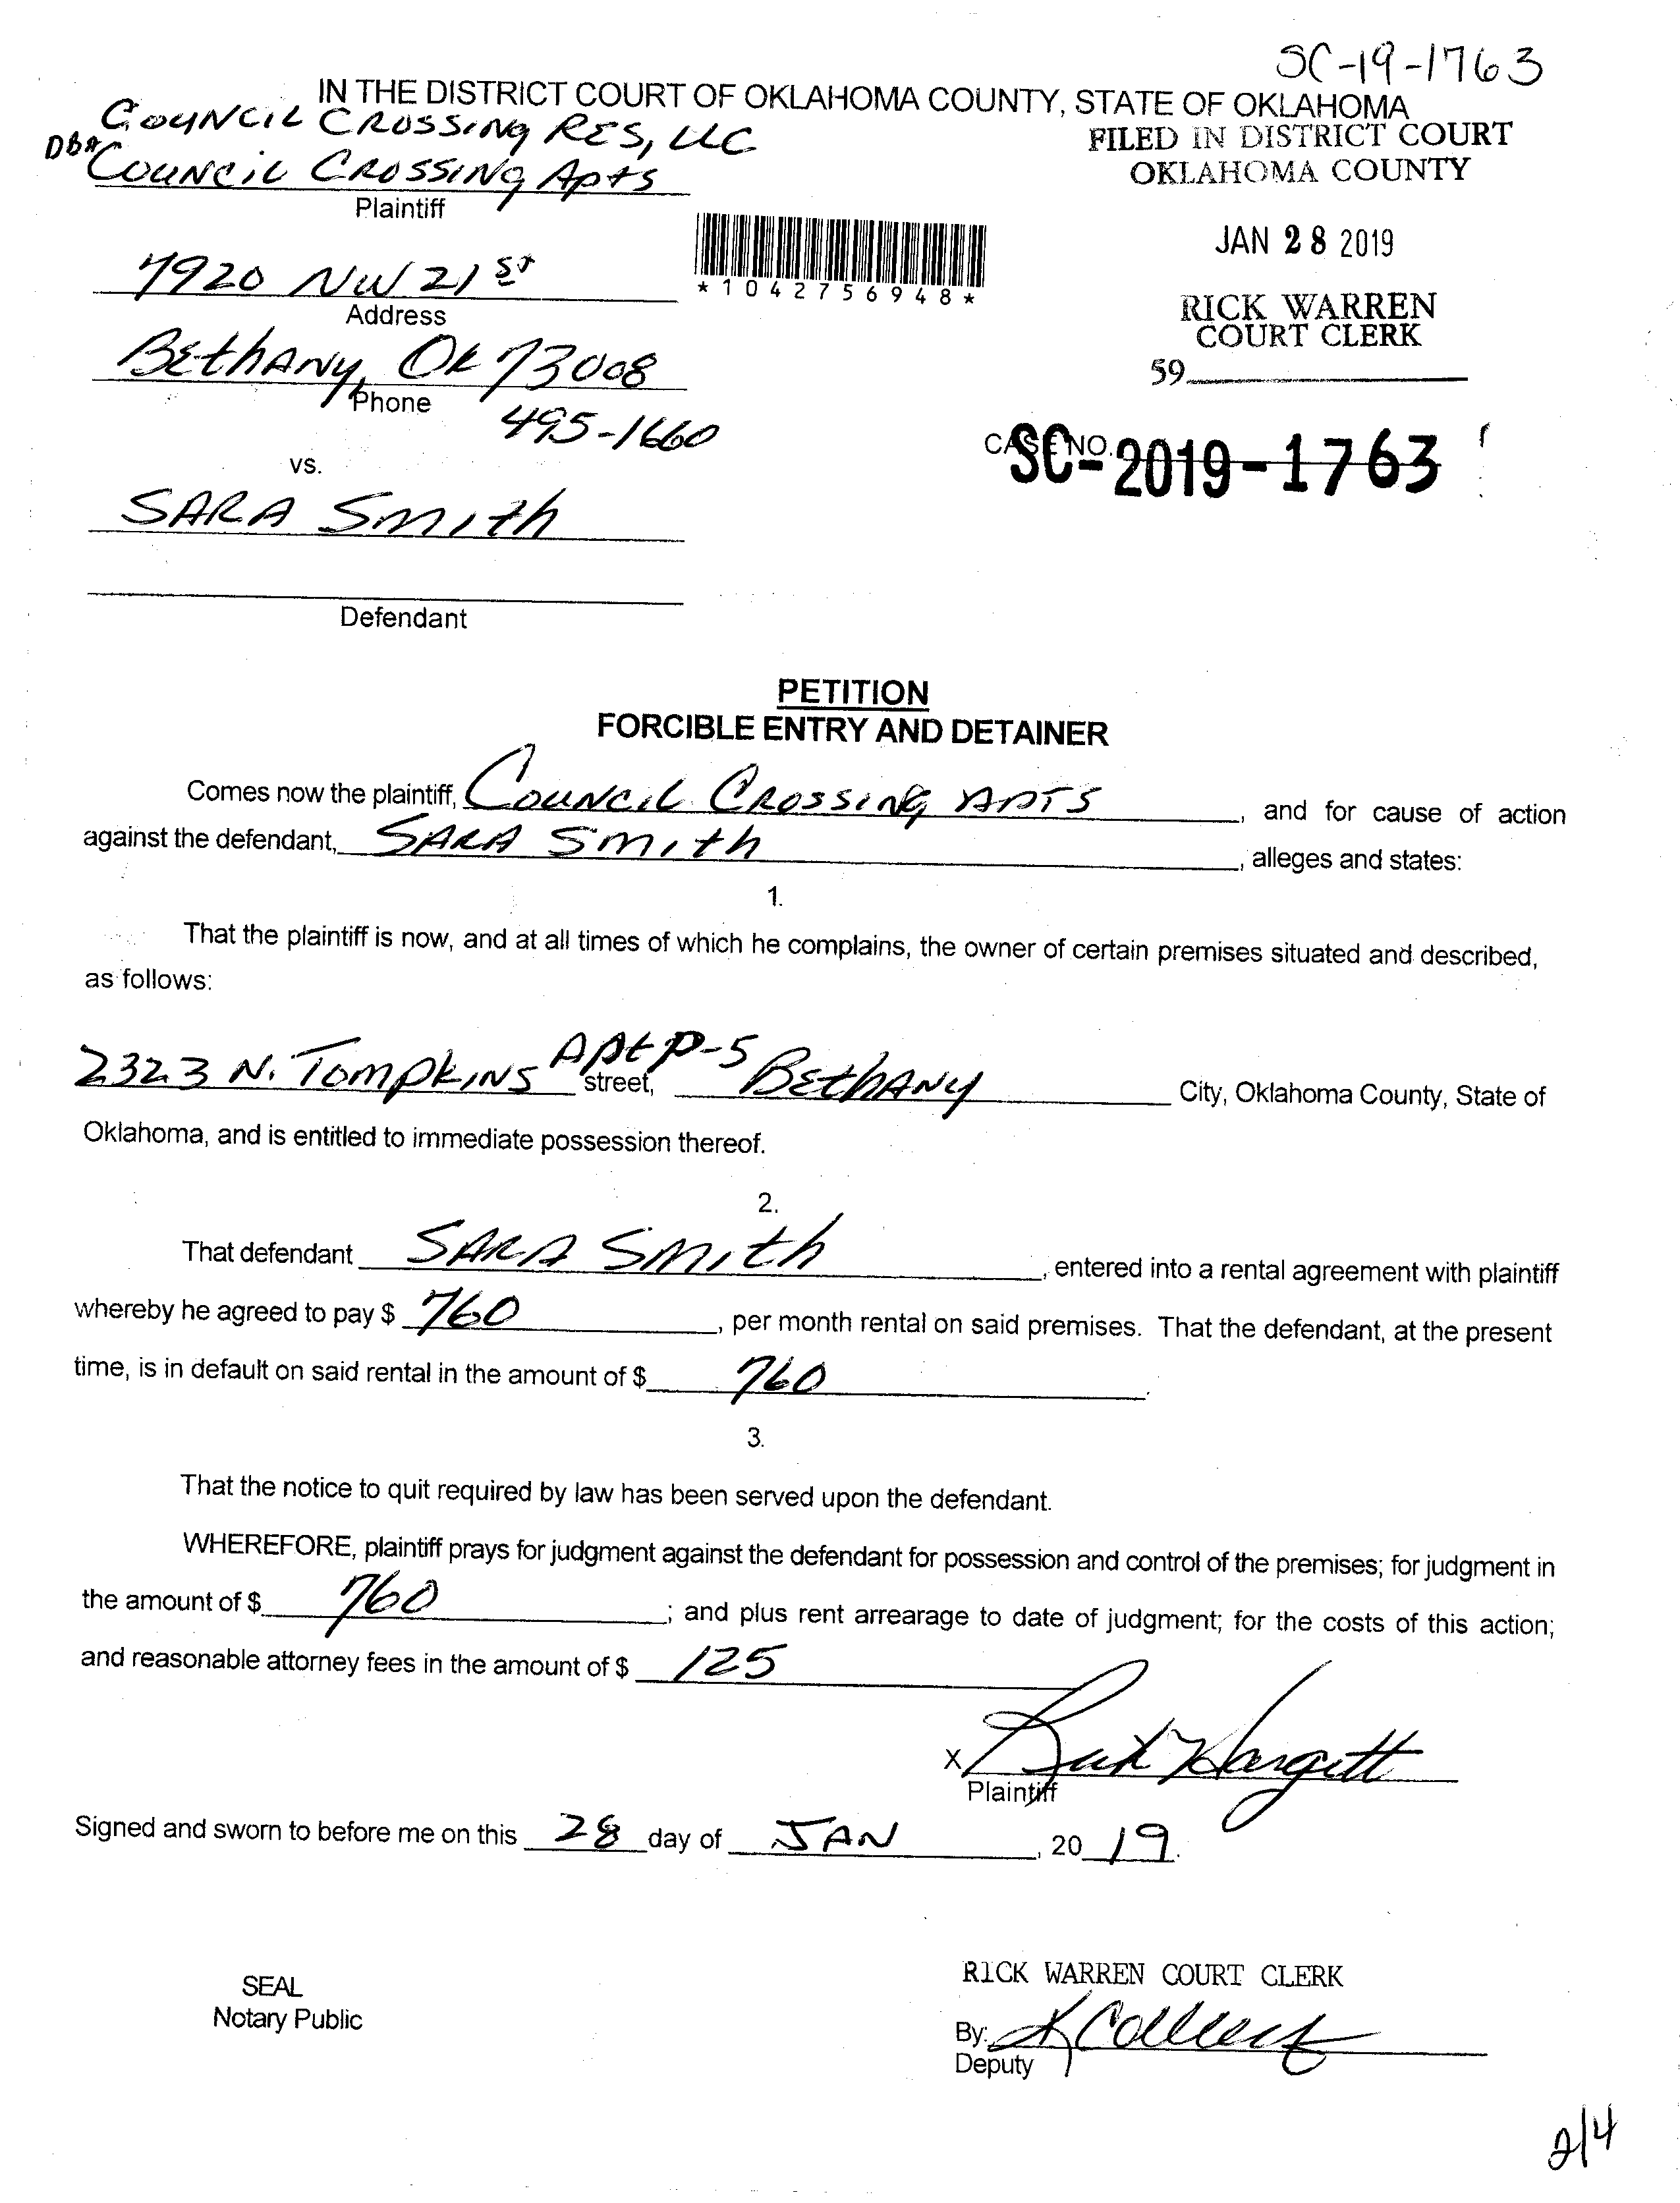 SC-19-1763
IN THE DISTRICT COURT OF OKLAHOMA COUNTY, STATE OF OKLAHOMA
COUNCIL CROSSING RES, LLC
DBA COUNCIL CROSSING Apts
Plaintiff
FILED IN DISTRICT COURT
OKLAHOMA COUNTY
JAN 28 2019
RICK WARREN
COURT CLERK
59
*1042756948*
7920 NW 21 ST
Address
BEthANY, OK 73008
Phone
495-1660
vs.
CASE NO.
SC-2019-1763
SARA Smith
Defendant
PETITION
FORCIBLE ENTRY AND DETAINER
Comes now the plaintiff, COUNCIL CROSSING APTS, and for cause of action
against the defendant, SARA Smith, alleges and states:
1.
That the plaintiff is now, and at all times of which he complains, the owner of certain premises situated and described,
as follows:
2323 N. TOMPKINS Apt P-5 street, BEthANY City, Oklahoma County, State of
Oklahoma, and is entitled to immediate possession thereof.
2.
That defendant SARA Smith, entered into a rental agreement with plaintiff
whereby he agreed to pay $ 760, per month rental on said premises. That the defendant, at the present
time, is in default on said rental in the amount of $ 760.
3.
That the notice to quit required by law has been served upon the defendant.
WHEREFORE, plaintiff prays for judgment against the defendant for possession and control of the premises; for judgment in
the amount of $ 760; and plus rent arrearage to date of judgment; for the costs of this action;
and reasonable attorney fees in the amount of $ 125
X Hargett
Plaintiff
Signed and sworn to before me on this 28 day of JAN, 20 19.
SEAL
Notary Public
RICK WARREN COURT CLERK
By:
Deputy
2/4